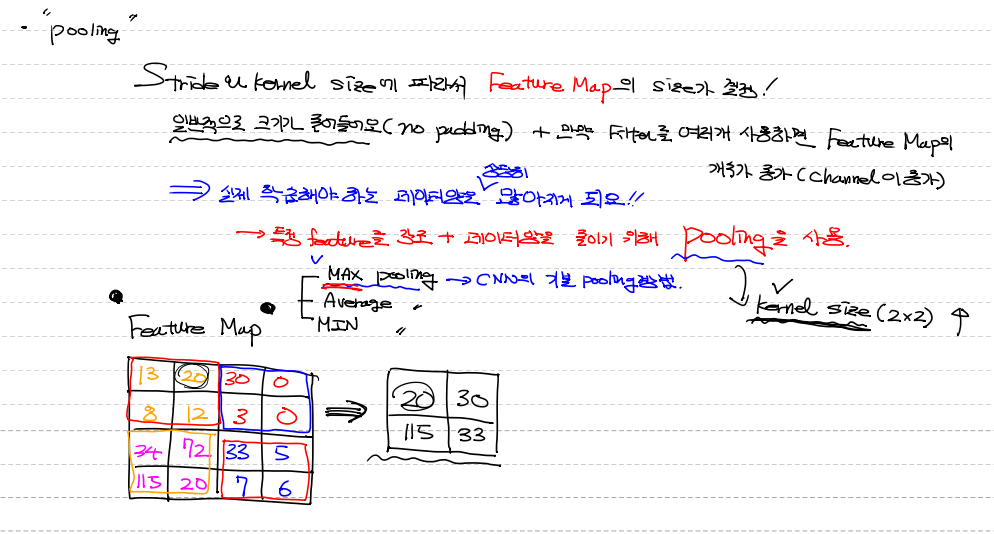 • "pooling"
Stride와 kernel size에 따라서 Feature Map의 size가 결정!
일반적으로 크기가 줄어들어요(no padding) + 만약 Filter를 여러개 사용하면 Feature Map의
개수가 증가(channel이 증가)
⇒ 실제 학습해야 하는 데이터양은 굉장히 많아지게 되요!!
→ 특정 feature를 강조 + 데이터양을 줄이기 위해 pooling을 사용.
MAX pooling → CNN의 기본 pooling방법.
Average "
MIN "
kernel size (2×2) ↑
Feature Map
13 20 30 0
8 12 3 0
34 72 33 5
115 20 7 6
⇒
20 30
115 33